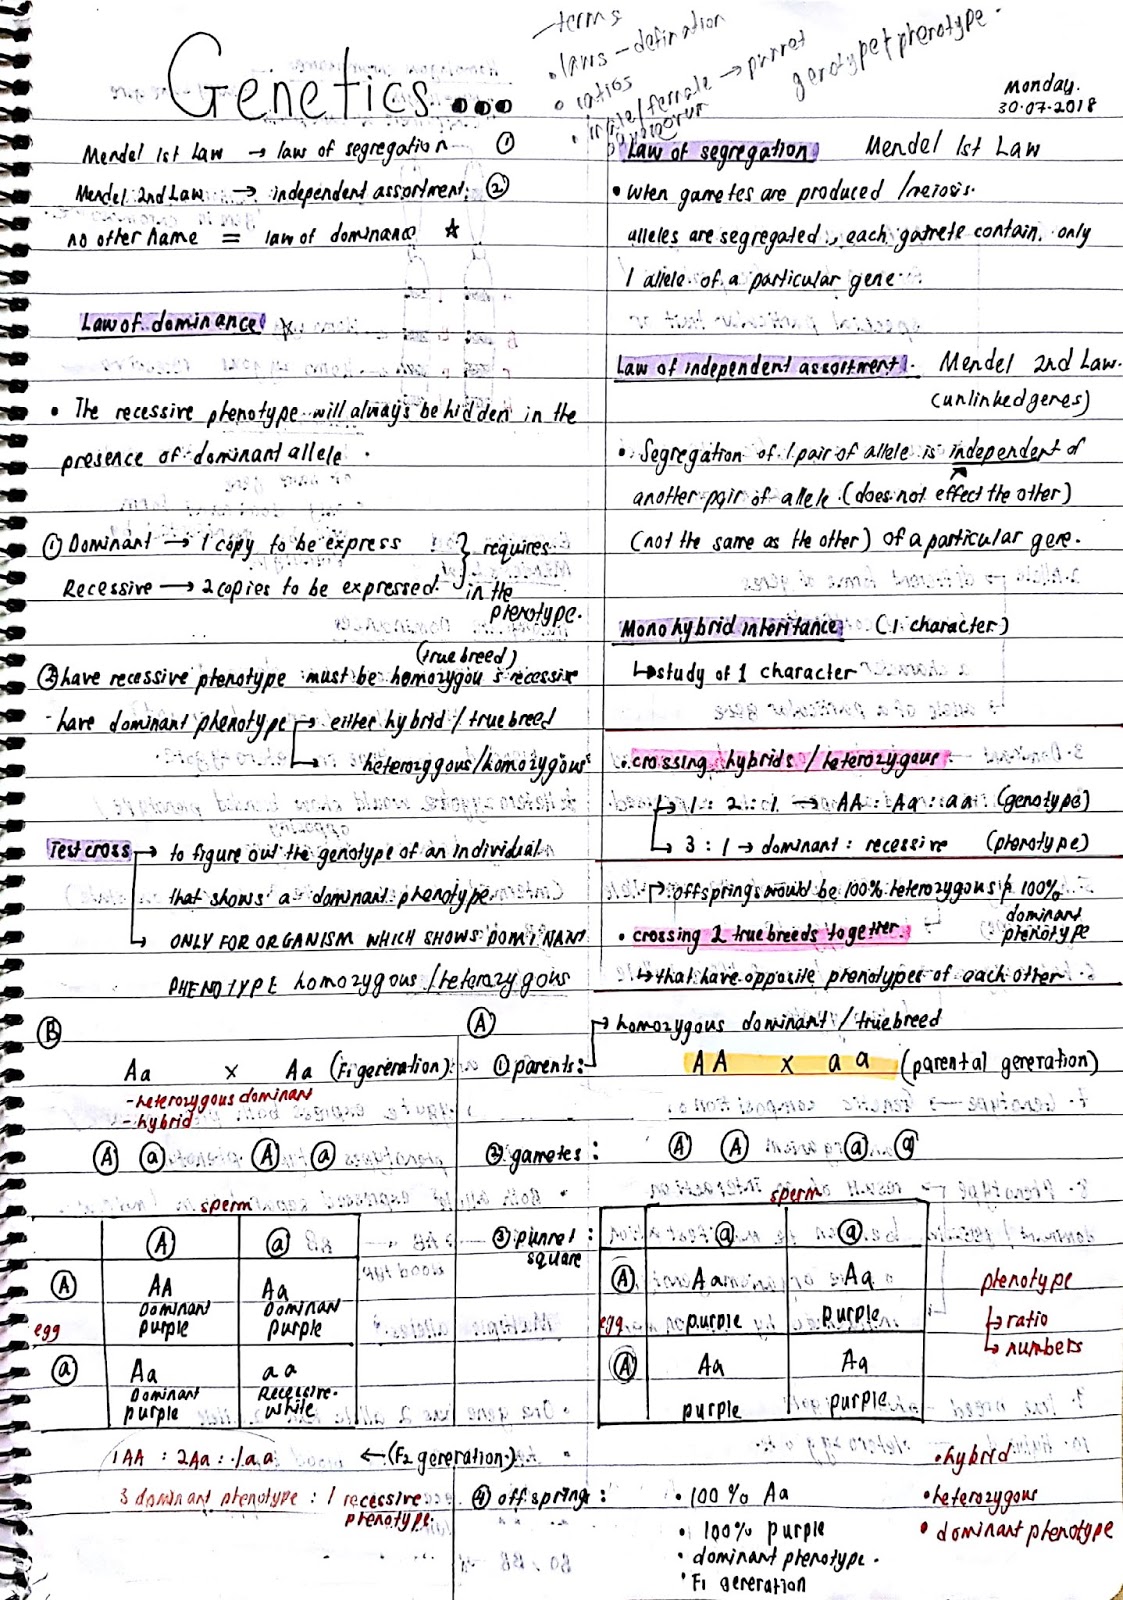 Genetics...
- terms
• laws - defination
• ratios
• male/female → punnet
genotype & phenotype.
Monday.
30.07.2018
Mendel 1st Law → law of segregation ①
Mendel 2nd Law → independent assortment. ②
no other name = law of dominance ☆
Law of dominance
• The recessive phenotype will always be hidden in the
presence of dominant allele.
① Dominant → 1 copy to be express } requires
Recessive → 2 copies to be expressed. in the
phenotype.
(true breed)
② have recessive phenotype must be homozygous recessive
- have dominant phenotype → either hybrid / true breed
→ heterozygous/homozygous
Test cross → to figure out the genotype of an individual
that shows a dominant phenotype.
→ ONLY FOR ORGANISM WHICH SHOWS DOMINANT
PHENOTYPE homozygous / heterozygous
Law of segregation Mendel 1st Law
• when gametes are produced /meiosis.
alleles are segregated, each gamete contain only
1 allele of a particular gene.
Law of independent assortment. Mendel 2nd Law.
(unlinked genes)
• Segregation of 1 pair of allele is independent of
another pair of allele. (does not effect the other)
(not the same as the other) of a particular gene.
Mono hybrid inheritance (1 character)
↳ study of 1 character
• crossing hybrids / heterozygous
→ 1 : 2 : 1 → AA : Aa : aa (genotype)
→ 3 : 1 → dominant : recessive (phenotype)
→ offsprings would be 100% heterozygous & 100%
dominant
phenotype
• crossing 2 true breeds together.
↳ that have opposite phenotypes of each other.
Ⓑ
Aa x Aa (F1 generation)
- heterozygous dominant
- hybrid
Ⓐ ⓐ Ⓐ ⓐ
sperm
Ⓐ ⓐ
Ⓐ AA Aa
Dominant Dominant
purple purple
egg
ⓐ Aa aa
Dominant Recessive.
purple white
1AA : 2Aa : 1aa ← (F2 generation)
3 dominant phenotype : 1 recessive
phenotype.
Ⓐ
→ homozygous dominant / true breed
① parents: AA x aa (parental generation)
② gametes: Ⓐ Ⓐ ⓐ ⓐ
sperm
③ punnet : ⓐ ⓐ
square
Ⓐ Aa Aa
egg purple purple
Ⓐ Aa Aa
purple purple
phenotype
↳ ratio
↳ numbers
④ offsprings : • 100% Aa
• 100% purple
• dominant phenotype.
• F1 generation
• hybrid
• heterozygous
• dominant phenotype